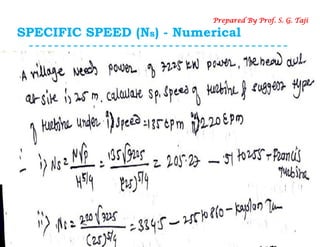 Prepared By Prof. S. G. Taji
SPECIFIC SPEED (Ns) - Numerical
A village needs power of 7225 kW power, The head avl
at site is 25 m. calculate sp. speed of turbine & suggest type
of turbine under i) speed = 135 rpm ii) 220 rpm
:- i) Ns = N√P / H^5/4 = 135√7225 / (25)^5/4 = 205.27 — 51 to 255 - Francis
Turbine
ii) Ns = 220√7225 / (25)^5/4 = 334.5 - 255 to 860 - Kaplan Tu